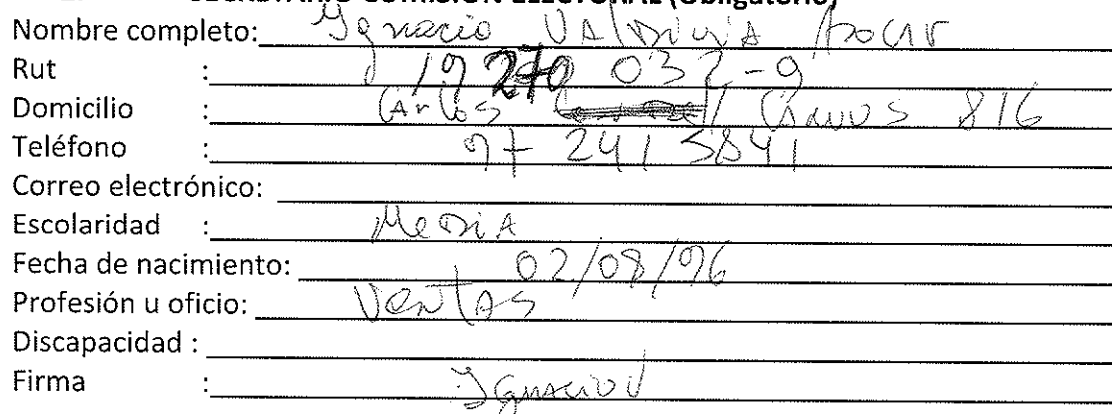 SECRETARIO COMISIÓN ELECTORAL (Obligatorio)
Nombre completo: Ignacio Valdivia
Rut : 19 270 032-9
Domicilio : Carlos Chavos 816
Teléfono : 97 241 5841
Correo electrónico:
Escolaridad : Media
Fecha de nacimiento: 02/08/96
Profesión u oficio: Ventas
Discapacidad :
Firma : Ignacio V